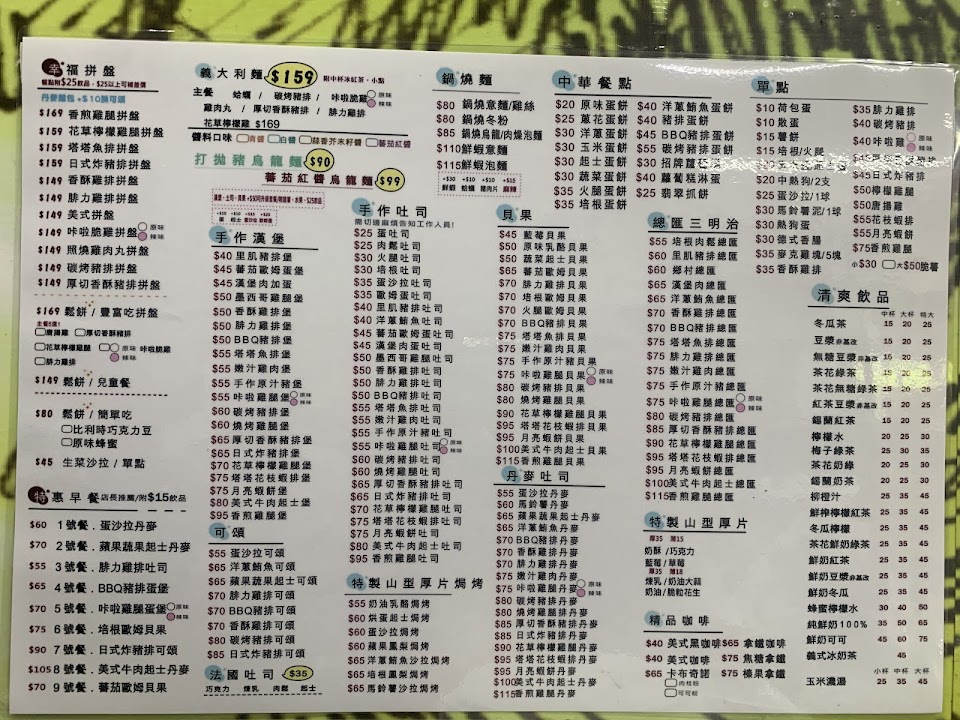 幸福拼盤
餐點附$25飲品．$25以上可補差價
丹麥麵包+$10換可頌
$169 香煎雞腿拼盤
$159 花草檸檬雞腿拼盤
$159 塔塔魚排拼盤
$159 日式炸豬排拼盤
$149 香酥雞排拼盤
$149 腓力雞排拼盤
$149 美式拼盤
$149 咔啦脆雞拼盤 原味 辣味
$149 照燒雞肉丸拼盤
$149 碳烤豬排拼盤
$149 厚切香酥豬排拼盤
$169 鬆餅/豐富吃拼盤
主餐5選1
唐揚雞 厚切香酥豬排
花草檸檬雞腿 原味 辣味 咔啦脆雞
腓力雞排
$149 鬆餅/兒童餐
$80 鬆餅/簡單吃
比利時巧克力豆
原味蜂蜜
$45 生菜沙拉/單點
特惠早餐 店長推薦/附$15飲品
$60 1號餐．蛋沙拉丹麥
$70 2號餐．蘋果蔬果起士丹麥
$55 3號餐．腓力雞排吐司
$65 4號餐．BBQ豬排蛋堡
$70 5號餐．咔啦雞腿蛋堡 原味 辣味
$75 6號餐．培根歐姆貝果
$90 7號餐．日式炸豬排可頌
$105 8號餐．美式牛肉起士丹麥
$70 9號餐．蕃茄歐姆貝果
義大利麵 $159 附中杯冰紅茶．小點
主餐 蛤蠣/ 碳烤豬排/ 咔啦脆雞 原味 辣味
雞肉丸/厚切香酥豬排/ 腓力雞排
花草檸檬雞腿 $169
醬料口味 青醬 白醬 蒜香芥末籽醬 蕃茄紅醬
打拋豬烏龍麵 $90
蕃茄紅醬烏龍麵 $99
手作漢堡
$40 里肌豬排堡
$45 蕃茄歐姆蛋堡
$45 漢堡肉加蛋
$50 墨西哥雞腿堡
$50 香酥雞排堡
$50 腓力雞排堡
$50 BBQ豬排堡
$55 塔塔魚排堡
$55 嫩汁雞肉堡
$55 手作原汁豬堡
$55 咔啦雞腿堡 原味 辣味
$60 碳烤豬排堡
$60 燒烤雞腿堡
$65 厚切香酥豬排堡
$65 日式炸豬排堡
$70 花草檸檬雞腿堡
$75 塔塔花枝蝦排堡
$75 月亮蝦餅堡
$80 美式牛肉起士堡
$95 香煎雞腿堡
可頌
$55 蛋沙拉可頌
$65 洋蔥鮪魚可頌
$65 蘋果蔬果起士可頌
$70 腓力雞排可頌
$70 BBQ豬排可頌
$70 香酥雞排可頌
$80 碳烤豬排可頌
$85 日式炸豬排可頌
法國吐司 $35
巧克力 煉乳 肉鬆 起士
手作吐司
需切邊麻煩告知工作人員!
$25 蛋吐司
$25 肉鬆吐司
$30 火腿吐司
$30 培根吐司
$35 蛋沙拉吐司
$35 歐姆蛋吐司
$40 里肌豬排吐司
$40 洋蔥鮪魚吐司
$45 蕃茄歐姆蛋吐司
$45 漢堡肉蛋吐司
$50 墨西哥雞腿吐司
$50 香酥雞排吐司
$50 腓力雞排吐司
$50 BBQ豬排吐司
$55 塔塔魚排吐司
$55 嫩汁雞肉吐司
$55 手作原汁豬吐司
$55 咔啦雞腿吐司 原味 辣味
$60 碳烤豬排吐司
$60 燒烤雞腿吐司
$65 厚切香酥豬排吐司
$65 日式炸豬排吐司
$70 花草檸檬雞腿吐司
$75 塔塔花枝蝦排吐司
$75 月亮蝦餅吐司
$80 美式牛肉起士吐司
$95 香煎雞腿吐司
特製山型厚片焗烤
$55 奶油乳酪焗烤
$60 烘蛋起士焗烤
$60 蛋沙拉焗烤
$60 蘋果鳳梨焗烤
$65 洋蔥鮪魚沙拉焗烤
$65 培根鳳梨焗烤
$65 馬鈴薯沙拉焗烤
鍋燒麵
$80 鍋燒意麵/雞絲
$80 鍋燒冬粉
$85 鍋燒烏龍/肉燥泡麵
$110 鮮蝦意麵
$115 鮮蝦泡麵
+$30 +$10 +$10 +$15
鮮蝦 蛤蠣 豬肉片 麻辣
貝果
$45 藍莓貝果
$50 原味乳酪貝果
$50 蔬菜起士貝果
$65 蕃茄歐姆貝果
$70 腓力雞排貝果
$70 培根歐姆貝果
$70 火腿歐姆貝果
$70 BBQ豬排貝果
$75 塔塔魚排貝果
$75 嫩汁雞肉貝果
$75 手作原汁豬貝果
$75 咔啦雞腿貝果 原味 辣味
$80 碳烤豬排貝果
$80 燒烤雞腿貝果
$90 花草檸檬雞腿貝果
$95 塔塔花枝蝦排貝果
$95 月亮蝦餅貝果
$100 美式牛肉起士貝果
$115 香煎雞腿貝果
丹麥吐司
$55 蛋沙拉丹麥
$60 馬鈴薯丹麥
$65 蘋果蔬果起士丹麥
$65 洋蔥鮪魚丹麥
$70 BBQ豬排丹麥
$70 香酥雞排丹麥
$70 腓力雞排丹麥
$75 嫩汁雞肉丹麥
$75 咔啦雞腿丹麥 原味 辣味
$80 碳烤豬排丹麥
$80 燒烤雞腿丹麥
$85 厚切香酥豬排丹麥
$85 日式炸豬排丹麥
$90 花草檸檬雞腿丹麥
$95 塔塔花枝蝦排丹麥
$95 月亮蝦餅丹麥
$100 美式牛肉起士丹麥
$115 香煎雞腿丹麥
中華餐點
$20 原味蛋餅
$25 蔥花蛋餅
$30 洋蔥蛋餅
$30 玉米蛋餅
$30 起士蛋餅
$30 蔬菜蛋餅
$35 火腿蛋餅
$35 培根蛋餅
$40 洋蔥鮪魚蛋餅
$40 豬排蛋餅
$45 BBQ豬排蛋餅
$55 碳烤豬排蛋餅
$30 招牌蘿蔔糕
$40 蘿蔔糕淋蛋
$25 翡翠抓餅
總匯三明治
$55 培根肉鬆總匯
$60 里肌豬排總匯
$60 鄉村總匯
$65 漢堡肉總匯
$65 洋蔥鮪魚總匯
$70 香酥雞排總匯
$70 BBQ豬排總匯
$75 塔塔魚排總匯
$75 腓力雞排總匯
$75 嫩汁雞肉總匯
$75 手作原汁豬總匯
$75 咔啦雞腿總匯 原味 辣味
$80 碳烤豬排總匯
$85 厚切香酥豬排總匯
$90 花草檸檬雞腿總匯
$95 塔塔花枝蝦排總匯
$95 月亮蝦餅總匯
$100 美式牛肉起士總匯
$115 香煎雞腿總匯
特製山型厚片
厚35 薄15
奶酥/巧克力
藍莓/草莓
厚35 薄18
煉乳/奶油大蒜
奶油/脆粒花生
精品咖啡
$40 美式黑咖啡 $65 拿鐵咖啡
$40 美式咖啡 $75 焦糖拿鐵
$65 卡布奇諾 $75 榛果拿鐵
肉桂粉
可可粉
單點
$10 荷包蛋
$10 散蛋
$15 薯餅
$15 培根/火腿
$20 中熱狗/2支
$25 蛋沙拉/1球
$30 馬鈴薯泥/1球
$30 熱狗蛋
$30 德式香腸
$35 麥克雞塊/5塊
$35 香酥雞排
$35 腓力雞排
$40 碳烤豬排
$40 咔啦雞 原味 辣味
$45 日式炸豬排
$50 檸檬雞腿
$50 唐揚雞
$55 花枝蝦排
$55 月亮蝦餅
$75 香煎雞腿
小$30 大$50脆薯
清爽飲品
中杯 大杯 特大
冬瓜茶 15 20 25
豆漿非基改 15 20 25
無糖豆漿非基改 15 20 25
茶花綠茶 15 20 25
茶花無糖綠茶 15 20 25
紅茶豆漿非基改 15 20 25
錫蘭紅茶 15 20 25
檸檬水 20 25 30
梅子綠茶 25 30 35
茶花奶綠 20 25 30
錫蘭奶茶 20 25 30
柳橙汁 25 35 45
鮮榨檸檬紅茶 25 35 45
冬瓜檸檬 25 35 45
茶花鮮奶綠茶 25 35 45
鮮奶紅茶 25 35 45
鮮奶豆漿非基改 25 35 45
鮮奶冬瓜 25 35 45
蜂蜜檸檬水 30 40 50
純鮮奶100% 35 50 65
鮮奶可可 45 60 75
義式冰奶茶 45
小杯 中杯 大杯
玉米濃湯 25 35 45